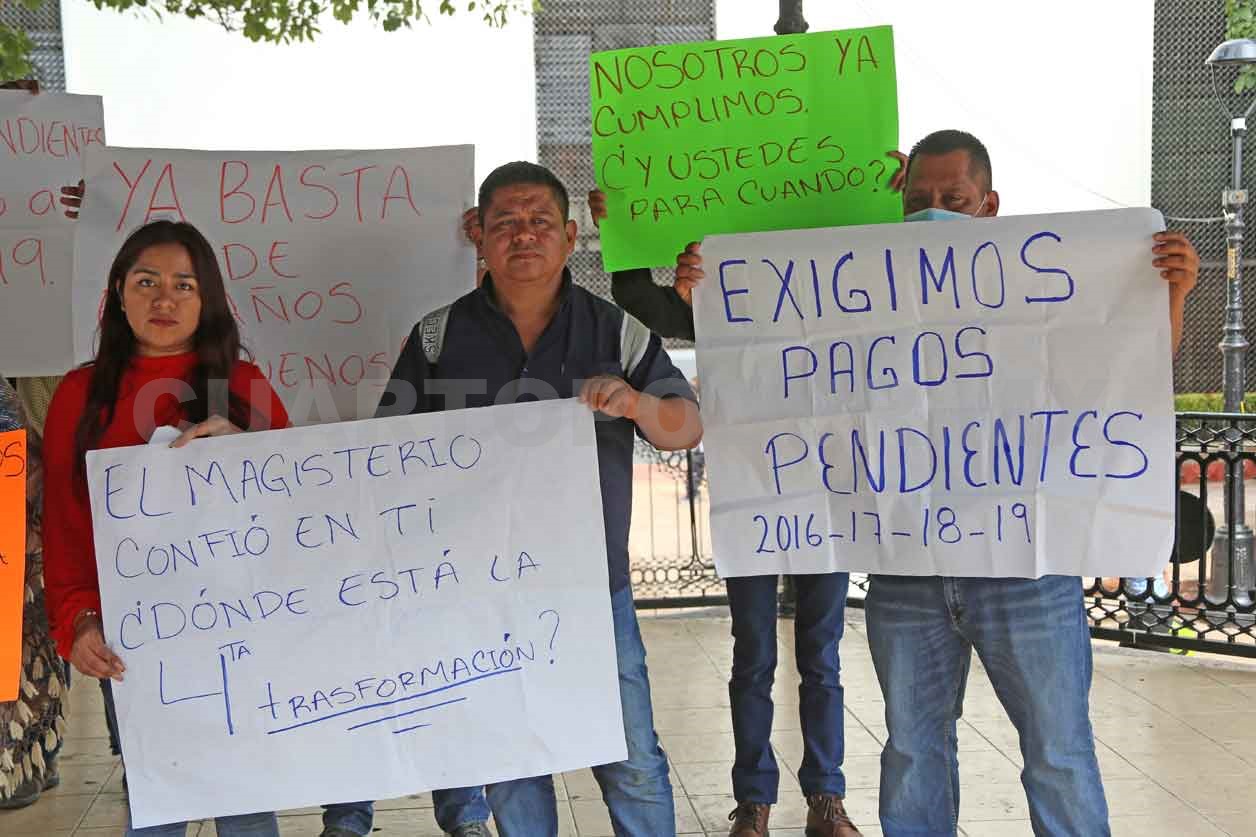 NDIENTES
19.
YA BASTA
DE
AÑOS.
NOSOTROS YA
CUMPLIMOS.
¿Y USTEDES
PARA CUANDO?
EL MAGISTERIO
CONFIÓ EN TI
¿DÓNDE ESTÁ LA
4TA
tRASFORMACIÓN?
EXIGIMOS
PAGOS
PENDIENTES
2016-17-18-19